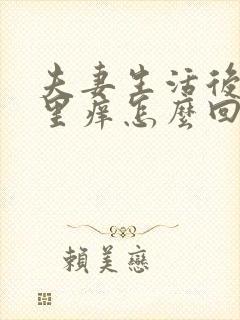 夫妻生活後
里痒怎麼回
賴美戀